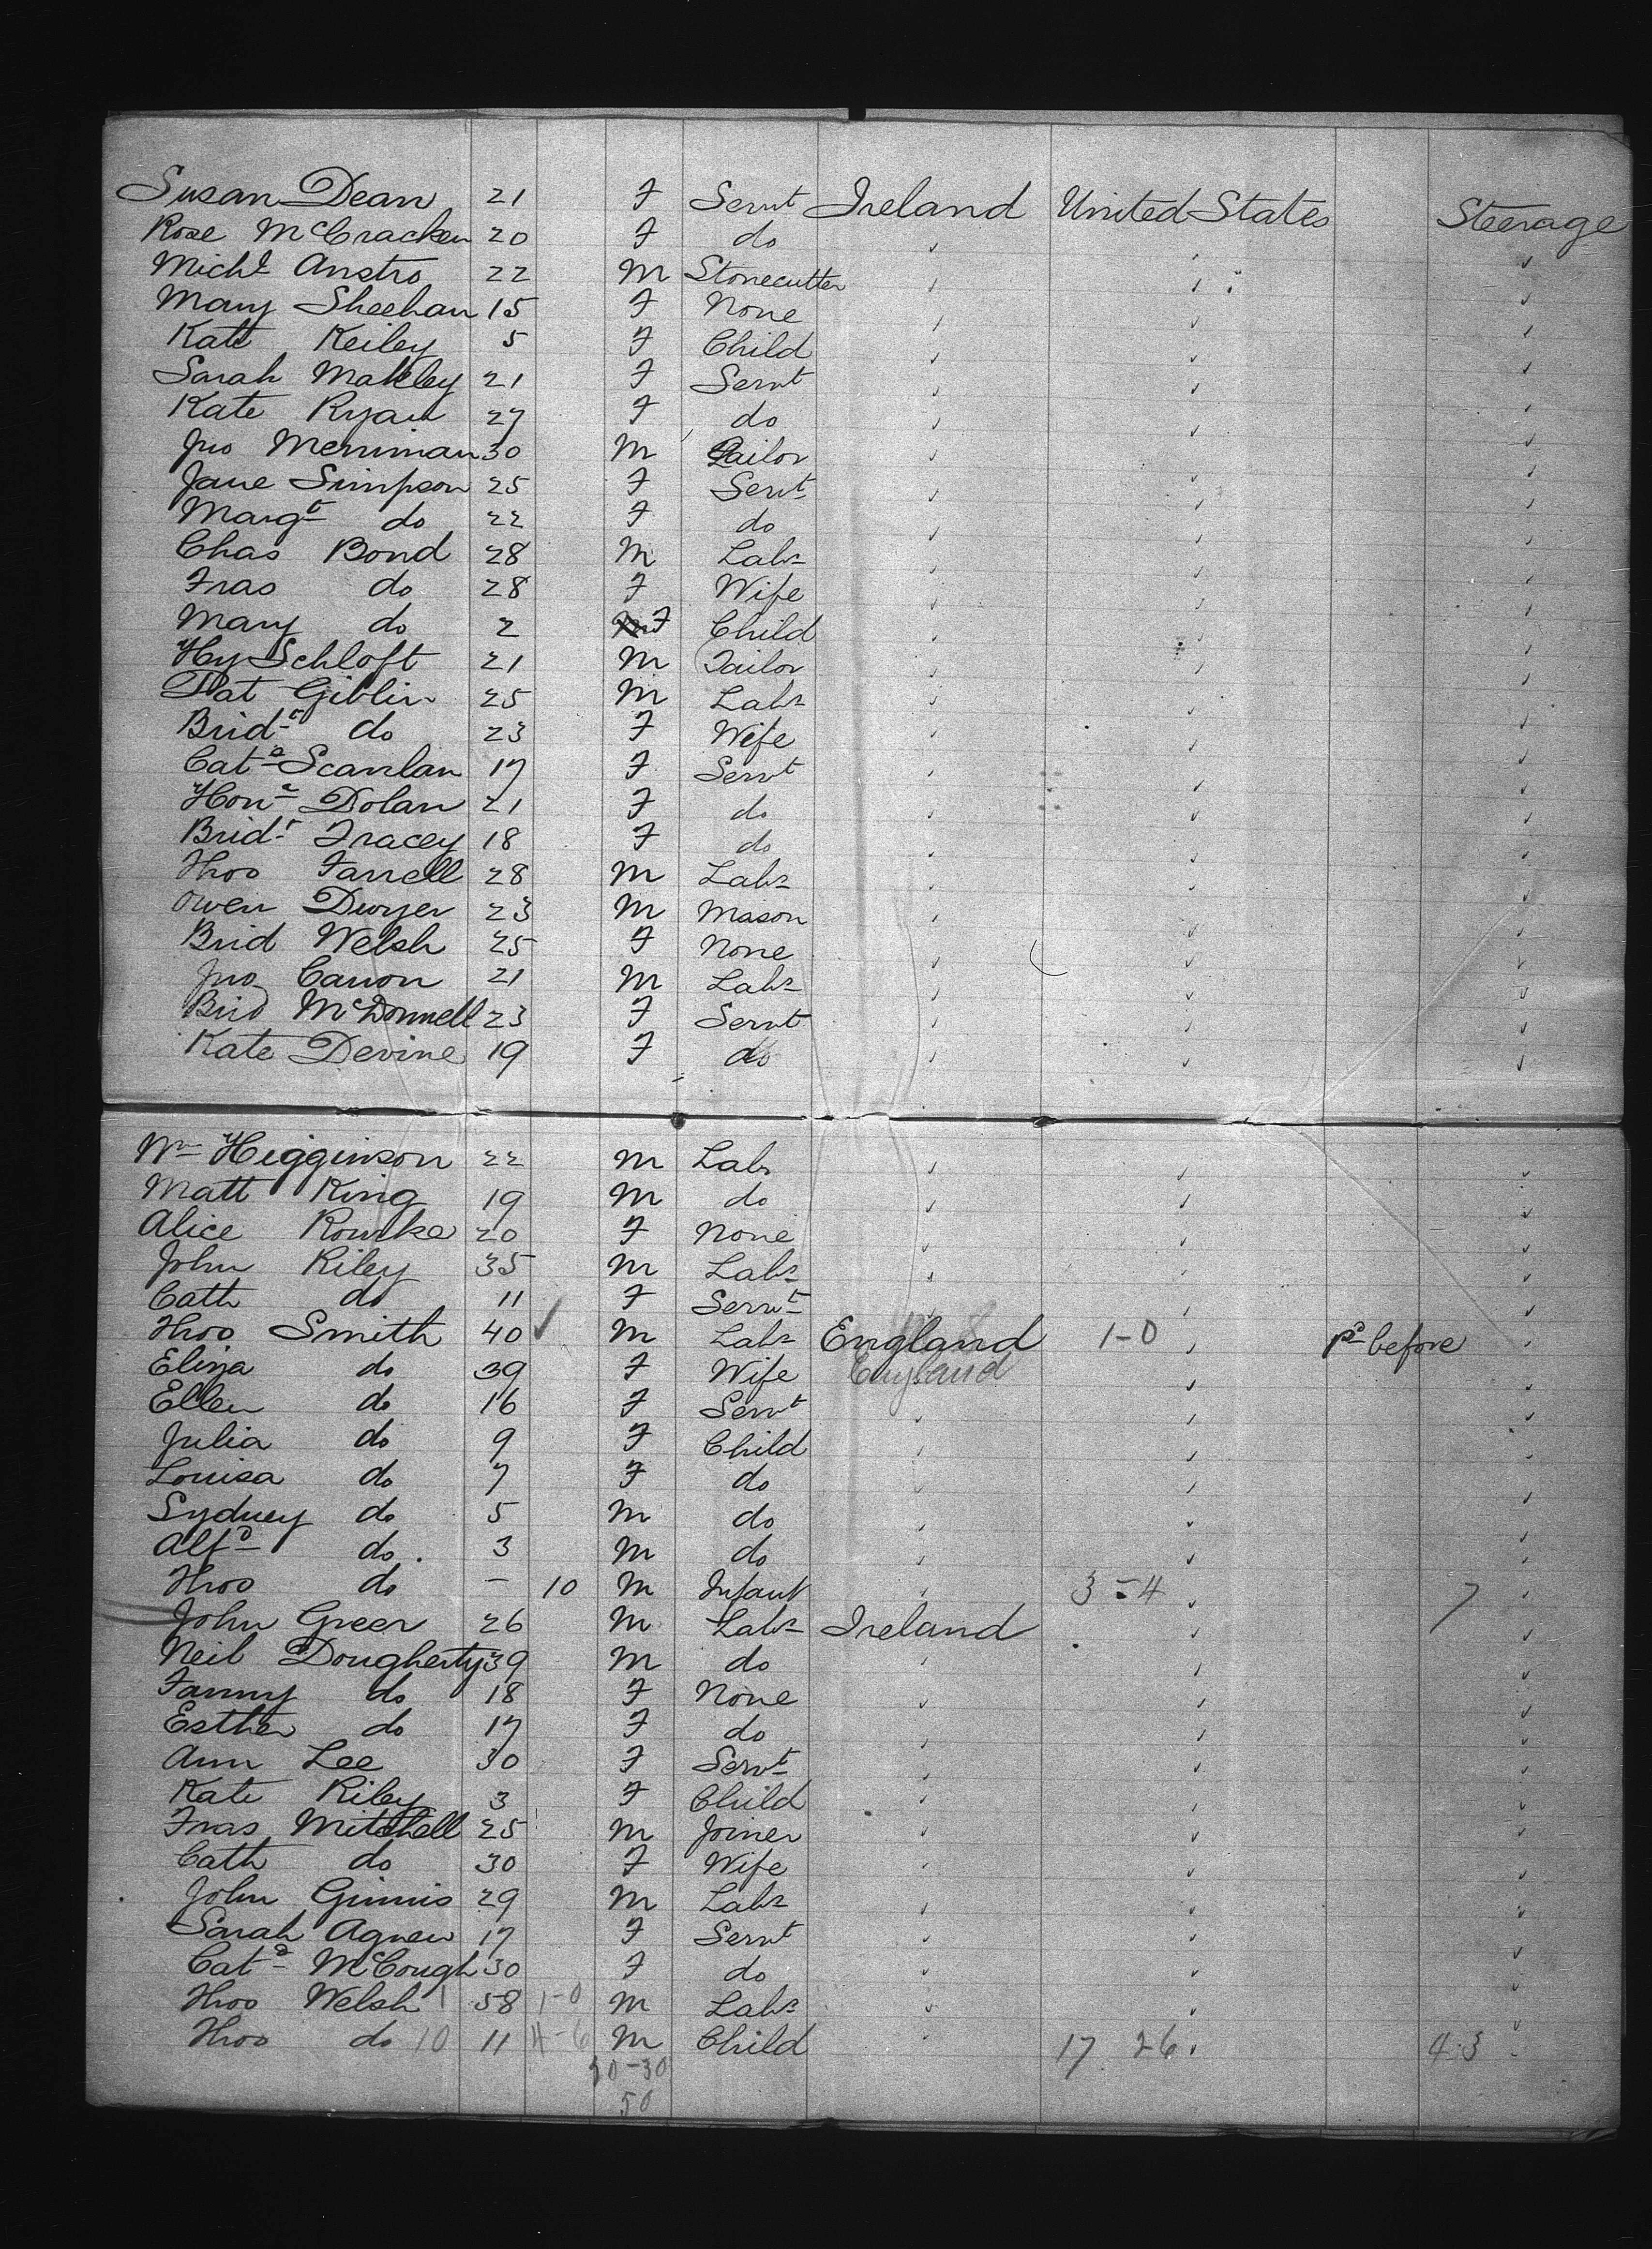 Susan Dean 21 F Servt Ireland United States Steerage
Rose McCracken 20 F do ✓ ✓ ✓
Michl Anstro 22 M Stonecutter ✓ ✓ ✓
Mary Sheehan 15 F None ✓ ✓ ✓
Kate Keiley 5 F Child ✓ ✓ ✓
Sarah Makley 21 F Servt ✓ ✓ ✓
Kate Ryan 27 F do ✓ ✓ ✓
Jno Merriman 30 M Tailor ✓ ✓ ✓
Jane Simpson 25 F Servt ✓ ✓ ✓
Margt do 22 F do ✓ ✓ ✓
Chas Bond 28 M Labr ✓ ✓ ✓
Fras do 28 F Wife ✓ ✓ ✓
Mary do 2 F Child ✓ ✓ ✓
Hy Schloft 21 M Tailor ✓ ✓ ✓
Pat Giblin 25 M Labr ✓ ✓ ✓
Bridt do 23 F Wife ✓ ✓ ✓
Cate Scanlan 17 F Servt ✓ ✓ ✓
Hona Dolan 21 F do ✓ ✓ ✓
Bridt Tracey 18 F do ✓ ✓ ✓
Thos Farrell 28 M Labr ✓ ✓ ✓
Owen Dwyer 23 M Mason ✓ ✓ ✓
Brid Welsh 25 F None ✓ ✓ ✓
Jno Canon 21 M Labr ✓ ✓ ✓
Brid McDonnell 23 F Servt ✓ ✓ ✓
Kate Devine 19 F do ✓ ✓ ✓
Wm Higginson 22 M Labr ✓ ✓ ✓
Matt King 19 M do ✓ ✓ ✓
Alice Rourke 20 F None ✓ ✓ ✓
John Riley 35 M Labr ✓ ✓ ✓
Cath do 11 F Servt ✓ ✓ ✓
Thos Smith 40 ✓ M Labr England 1-0 ✓ pd before ✓
Eliza do 39 F Wife England ✓ ✓
Ellen do 16 F Servt ✓ ✓ ✓
Julia do 9 F Child ✓ ✓ ✓
Louisa do 7 F do ✓ ✓ ✓
Sydney do 5 M do ✓ ✓ ✓
Alfd do 3 M do ✓ ✓ ✓
Thos do - 10 M Infant ✓ 3-4 ✓ 7 ✓
John Greer 26 M Labr Ireland ✓ ✓
Neil Dougherty 39 M do ✓ ✓ ✓
Fanny do 18 F None ✓ ✓ ✓
Esther do 17 F do ✓ ✓ ✓
Ann Lee 30 F Servt ✓ ✓ ✓
Kate Riley 3 F Child ✓ ✓ ✓
Fras Mitchell 25 M Joiner ✓ ✓ ✓
Cath do 30 F Wife ✓ ✓ ✓
John Ginnis 29 M Labr ✓ ✓ ✓
Sarah Agnew 17 F Servt ✓ ✓ ✓
Cate McCough 30 F do ✓ ✓ ✓
Thos Welsh 1 58 1-0 M Labr ✓ ✓ ✓
Thos do 10 11 4-6 M Child ✓ 17 26 ✓ 4 3
20-30
50